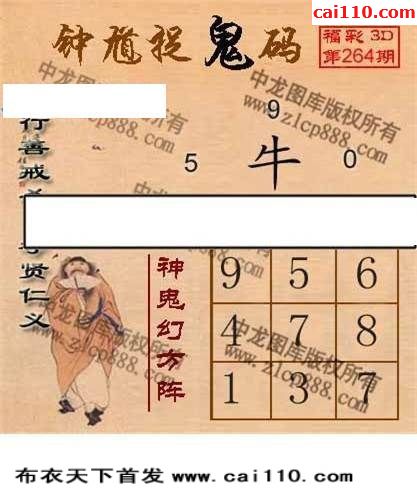 cai110.com
钟馗捉鬼码
福彩 3D
第264期
中龙图库版权所有
www.zlcp888.com
9
5 牛 0
行善戒
贤仁义
神鬼幻方阵
9 5 6
4 7 8
1 3 7
中龙图库版权所有
www.zlcp888.com
布衣天下首发 www.cai110.com